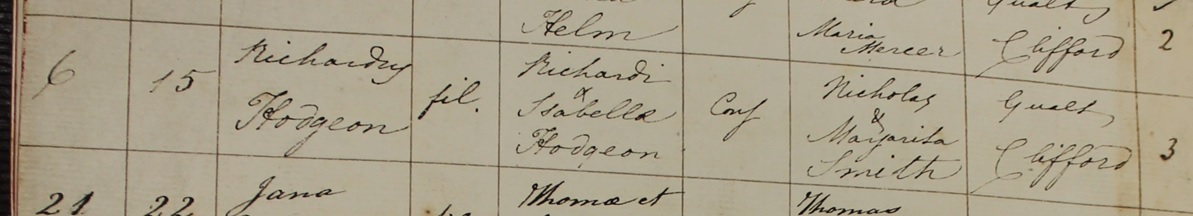 Helm Maria Mercer Clifford 2
6 15 Richardus Hodgeon fil. Richardi & Isabellæ Hodgeon Conj Nicholas & Margarita Smith Gualt, Clifford 3
21 22 Jana Thomæ et Thomas